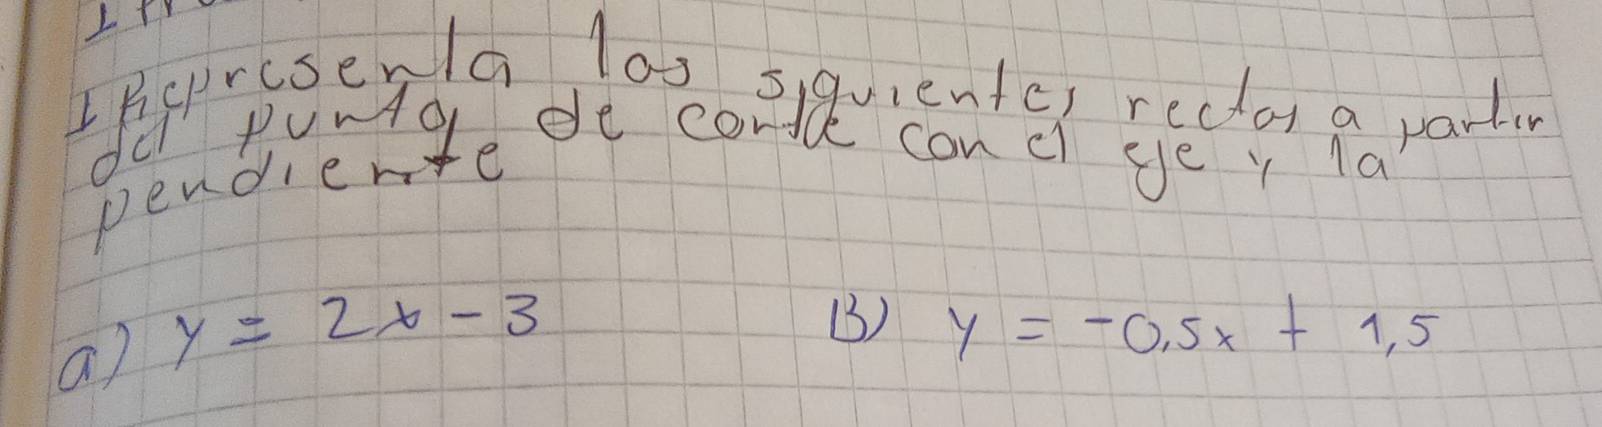 1 Representa las siguientes rectas a partir
del punto de corte con el eje y la
pendiente
a) y = 2x - 3
B) y = -0,5x + 1,5